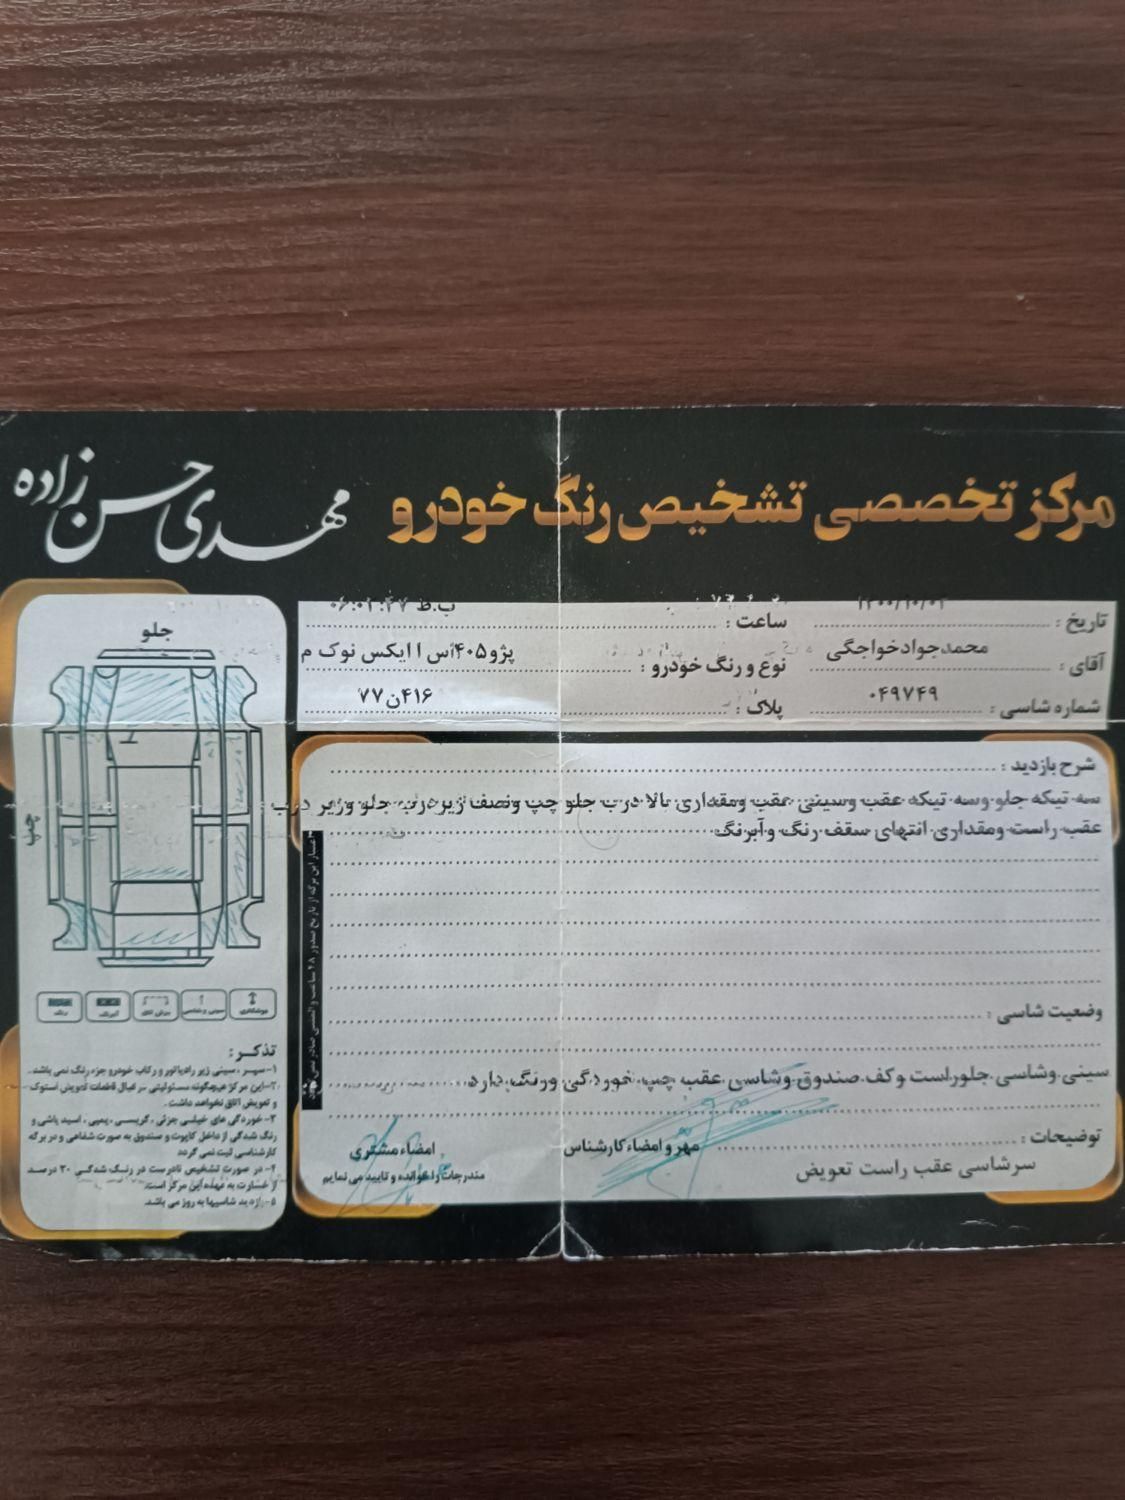 مرکز تخصصی تشخیص رنگ خودرو
مهدی حسن زاده
تاریخ :
ساعت : ب.ظ
آقای : محمدجوادخواجگی
نوع و رنگ خودرو : پژو۴۰۵آس اایکس نوک م
شماره شاسی : ۰۴۹۷۴۹
پلاک : ۴۱۶ن۷۷
شرح بازدید :
سه تیکه جلو وسه تیکه عقب وسینی عقب ومقداری بالا درب جلو چپ ونصف زیردرب جلو وزیر درب
عقب راست ومقداری انتهای سقف رنگ وآبرنگ
وضعیت شاسی :
سینی وشاسی جلوراست وکف صندوق وشاسی عقب چپ خوردگی ورنگ دارد
توضیحات :
سرشاسی عقب راست تعویض
مهر و امضاء کارشناس
امضاء مشتری
مندرجات را خوانده و تایید می نمایم
جلو
چپ
جوشکاری
سینی و شاسی
برش اتاق
آبرنگ
رنگ
تذکر :
۱- سپر ، سینی زیر رادیاتور و رکاب خودرو جزء رنگ نمی باشد.
۲- این مرکز هیچگونه مسئولیتی در قبال قطعات تعویض استوک
و تعویض اتاق نخواهد داشت.
۳- خوردگی های خیلی جزئی، گریسی، پمپی، اسید پاشی و
رنگ شدگی از داخل کاپوت و صندوق به صورت شفاهی و در برگه
کارشناسی ثبت نمی گردد
۴- در صورت تشخیص نادرست در رنگ شدگی ۳۰ درصد
از خسارت به عهده این مرکز است.
۵- بازدید شاسیها به روز می باشد.